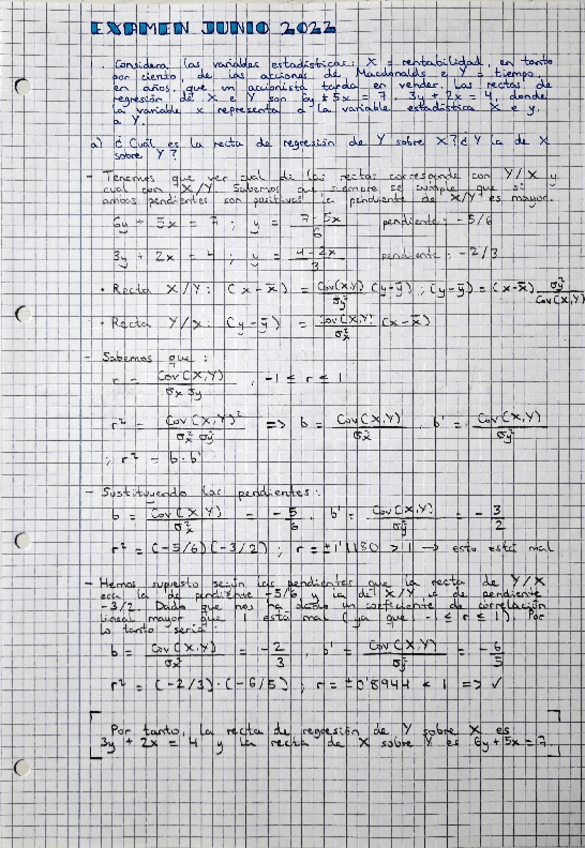 EXAMEN JUNIO 2022
· Considera las variables estadísticas: X = rentabilidad, en tanto
por ciento, de las acciones de Macdonalds e Y = tiempo,
en años, que un accionista tarda en vender. Las rectas de
regresión de X e Y son 6y + 5x = 7, 3y + 2x = 4, donde
la variable x representa a la variable estadística X e y,
a Y.
a) ¿Cuál es la recta de regresión de Y sobre X? ¿Y la de X
sobre Y?
- Tenemos que ver cual de las rectas corresponde con Y/X y
cual con X/Y. Sabemos que siempre se cumple que si
ambas pendientes son positivas la pendiente de X/Y es mayor.
6y + 5x = 7 ; y = (7-5x)/6 pendiente: -5/6
3y + 2x = 4 ; y = (4-2x)/3 pendiente: -2/3
· Recta X/Y: (x-x̄) = Cov(X,Y)/σy² (y-ȳ) ; (y-ȳ) = (x-x̄) σy²/Cov(X,Y)
· Recta Y/X: (y-ȳ) = Cov(X,Y)/σx² (x-x̄)
- Sabemos que:
r = Cov(X,Y)/σx σy , -1 ≤ r ≤ 1
r² = Cov(X,Y)²/σx² σy² => b = Cov(X,Y)/σx² , b' = Cov(X,Y)/σy²
; r² = b·b'
- Sustituyendo las pendientes:
b = Cov(X,Y)/σx² = -5/6 , b' = Cov(X,Y)/σy² = -3/2
r² = (-5/6)(-3/2) ; r = ±1'1180 > 1 → esto está mal
- Hemos supuesto según las pendientes que la recta de Y/X
era la de pendiente -5/6 y la de X/Y de pendiente
-3/2. Dado que nos ha dado un coeficiente de correlación
lineal mayor que 1 está mal (ya que -1 ≤ r ≤ 1). Por
lo tanto sería:
b = Cov(X,Y)/σx² = -2/3 , b' = Cov(X,Y)/σy² = -6/5
r² = (-2/3)·(-6/5) ; r = ±0'8944 < 1 => ✓
Por tanto, la recta de regresión de Y sobre X es
3y + 2x = 4 y la recta de X sobre Y es 6y + 5x = 7.